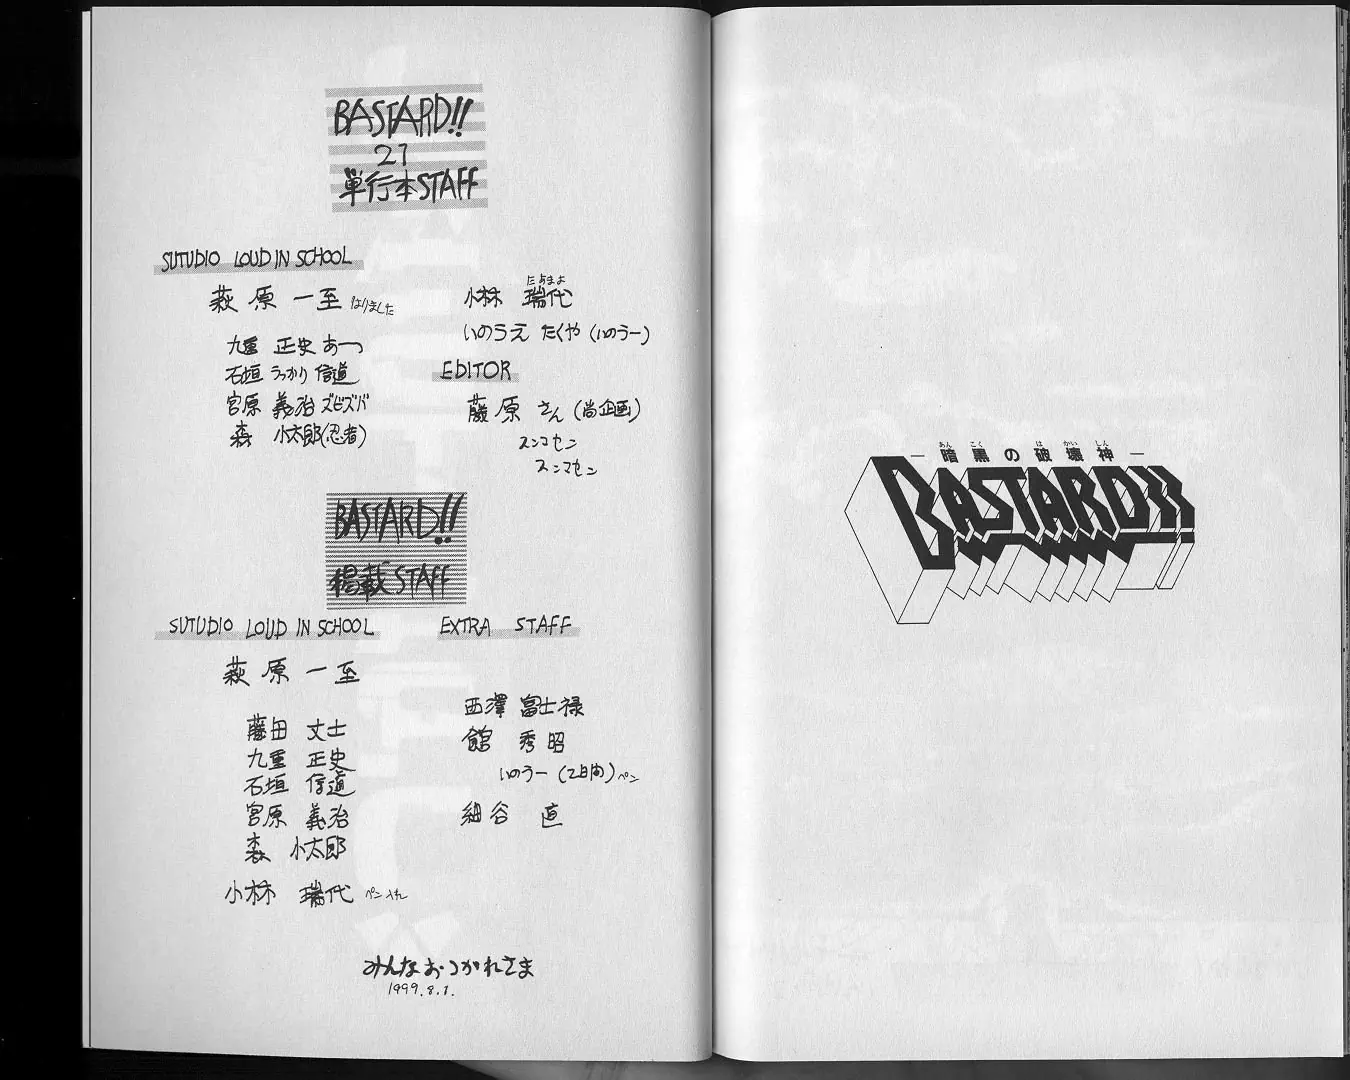 BASTARD!!
21
単行本STAFF
SUTUDIO LOUD IN SCHOOL
萩原 一至 はりました
九重 正史 あーつ
石垣 うっかり 信道
宮原 義治 ズビズバ
森 小太郎(忍者)
たまよ
小林 瑞代
いのうえ たくや (いのうー)
EDITOR
藤原 さん (尚企画)
スンマセン
スンマセン
BASTARD!!
掲載STAFF
SUTUDIO LOUD IN SCHOOL
萩原 一至
藤田 丈士
九重 正史
石垣 信道
宮原 義治
森 小太郎
小林 瑞代 ペン入れ
EXTRA STAFF
西澤 富士禄
館 秀昭
いのうー (2日間) ペン
細谷 直
みんなおつかれさま
1999.8.1.
あんこく は かい しん
― 暗黒の破壊神 ―
BASTARD!!